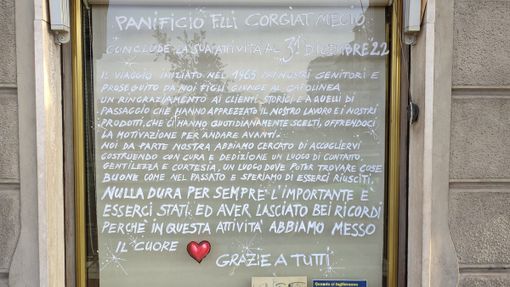 PANIFICIO F.LLI CORGIAT MECIO
CONCLUDE LA SUA ATTIVITÀ AL 31 DICEMBRE 22
IL VIAGGIO INIZIATO NEL 1965 DAI NOSTRI GENITORI E
PROSEGUITO DA NOI FIGLI GIUNGE AL CAPOLINEA
UN RINGRAZIAMENTO AI CLIENTI STORICI E A QUELLI DI
PASSAGGIO CHE HANNO APPREZZATO IL NOSTRO LAVORO E I NOSTRI
PRODOTTI, CHE CI HANNO QUOTIDIANAMENTE SCELTI, OFFRENDOCI
LA MOTIVAZIONE PER ANDARE AVANTI.
NOI DA PARTE NOSTRA ABBIAMO CERCATO DI ACCOGLIERVI
COSTRUENDO CON CURA E DEDIZIONE UN LUOGO DI CONTATTO,
GENTILEZZA E CORTESIA, UN LUOGO DOVE POTER TROVARE COSE
BUONE COME NEL PASSATO E SPERIAMO DI ESSERCI RIUSCITI.
NULLA DURA PER SEMPRE L'IMPORTANTE È
ESSERCI STATI ED AVER LASCIATO BEI RICORDI
PERCHÈ IN QUESTA ATTIVITÀ ABBIAMO MESSO
IL CUORE
GRAZIE A TUTTI